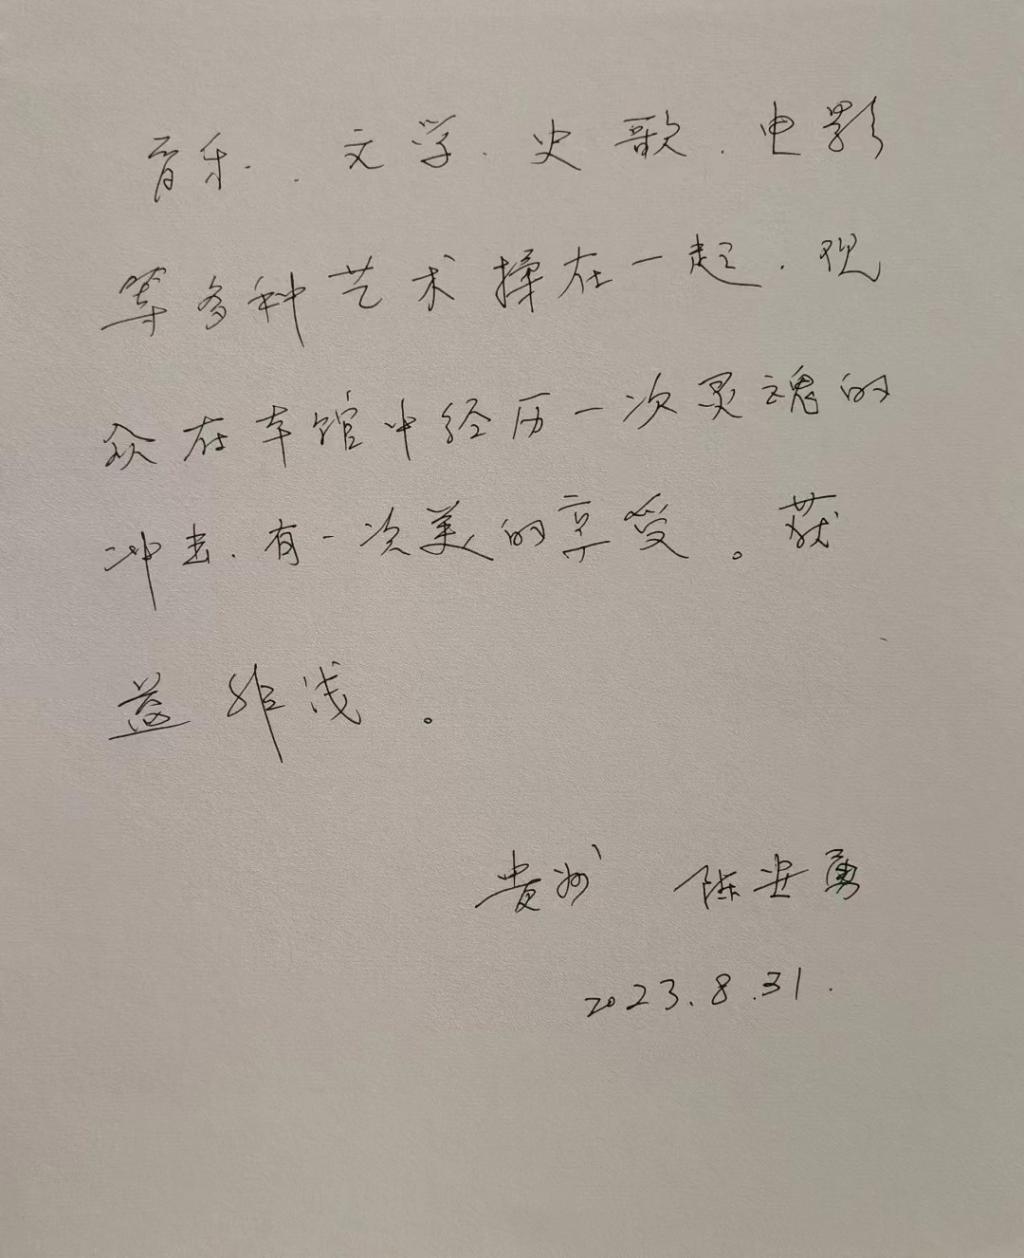 音乐、文学、史歌、电影
等多种艺术揉在一起,观
众在本馆中经历一次灵魂的
冲击、有一次美的享受。获
益非浅。
贵州 陈安勇
2023.8.31.